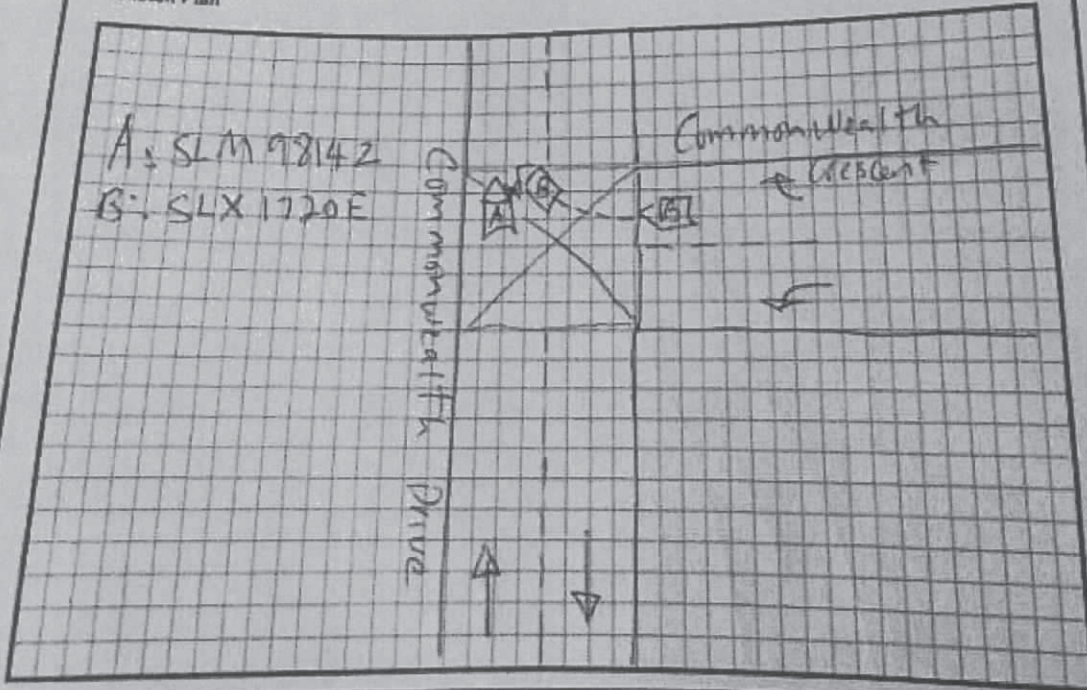 A: SLM 9814Z
B: SLX 1720E
Commonwealth Drive
Commonwealth
Crescent
A
B
B